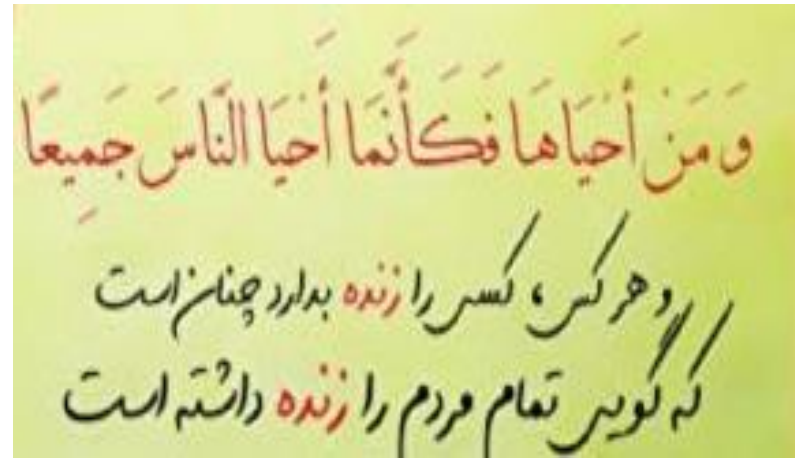 وَ مَنْ أَحْيَاهَا فَكَأَنَّمَا أَحْيَا النَّاسَ جَمِيعًا
و هر کس، کسی را زنده بدارد چنان است
که گویی تمام مردم را زنده داشته است